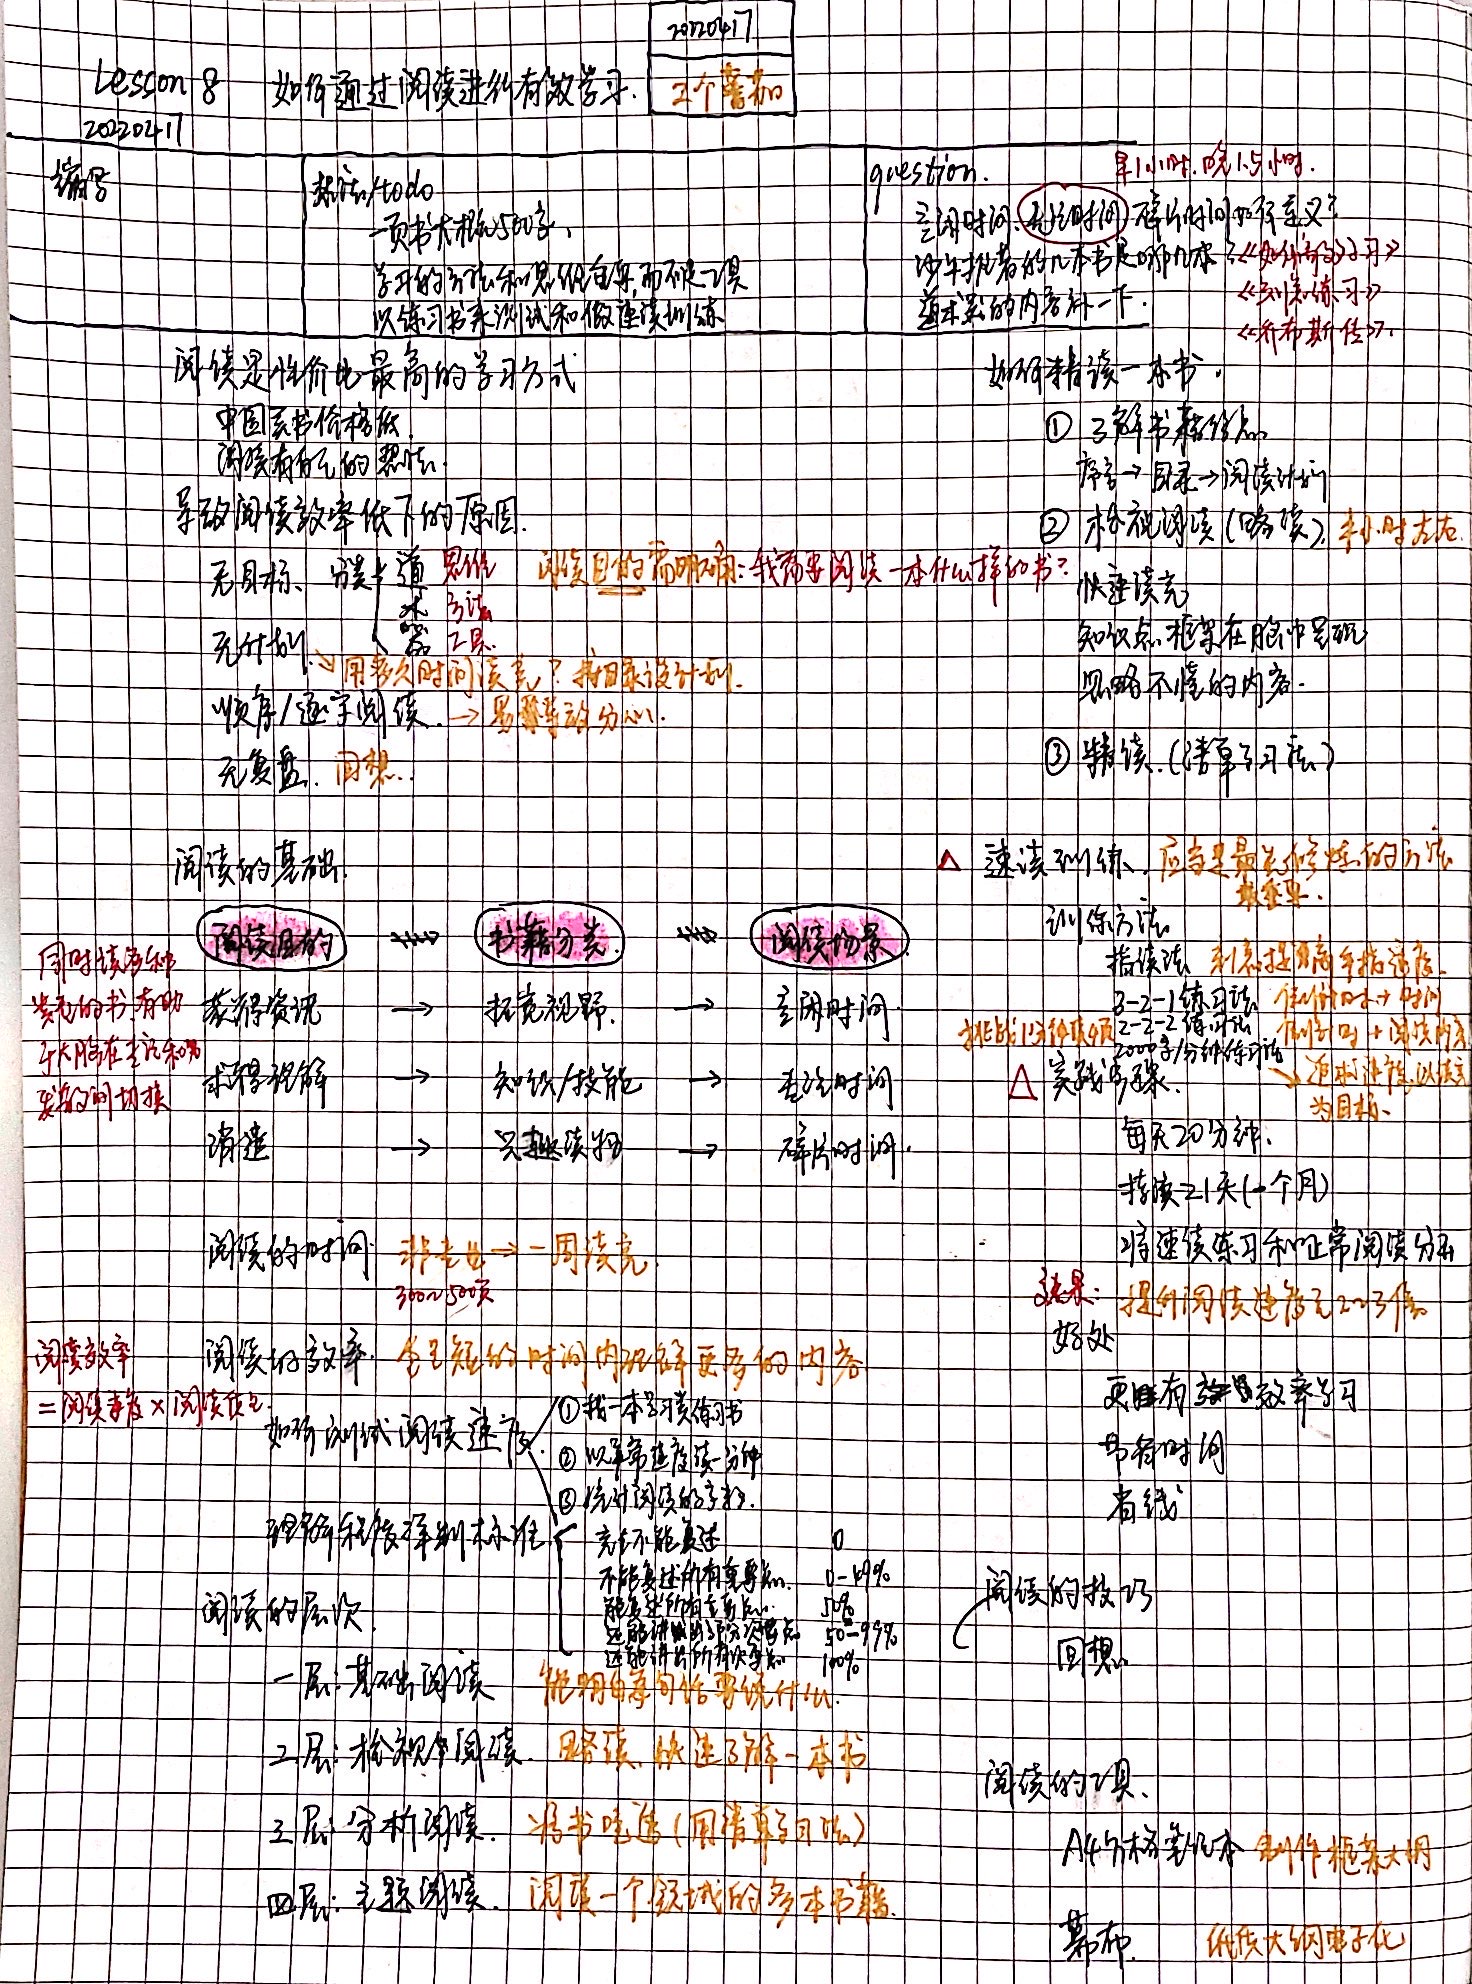 20220417
Lesson 8 如何通过阅读进行有效学习.
三个番茄
20220417
编号
想法/todo
一页书大概500字,
学习的方法和思维自序,而不是工具
以练习书来测试和做速读训练
question.
早1小时.晚1.5小时.
空闲时间.专注时间 碎片时间如何定义?
沙牛推荐的几本书是哪几本? 《如何高效学习》
《刻意练习》
《乔布斯传》.
道术器的内容补一下.
阅读是性价比最高的学习方式
中国买书价格低.
阅读有自己的想法.
导致阅读效率低下的原因.
无目标、分类 道 思维
术 方法
器 工具.
阅读目的需明确:我需要阅读一本什么样的书?
无计划. 用多久时间读完?按目录设计划.
顺序/逐字阅读. → 易导致分心.
无复盘. 回想.
阅读的基础.
阅读目的 书籍分类. 阅读场景.
同时读多种
类型的书,有助
于大脑在专注和
发散间切换
获得资讯 → 拓宽视野. → 空闲时间.
求得理解 → 知识/技能 → 专注时间
消遣 → 兴趣读物 → 碎片时间.
阅读的时间. 非专业 → 一周读完.
300~500页
阅读效率
=阅读速度×阅读质量.
阅读的效率. 在短的时间内理解更多的内容
如何测试阅读速度.
①找一本学习类练习书
②以平常速度读一分钟
③统计阅读的字数.
理解程度评判标准
完全不能复述 0
不能复述所有重要点. 0-49%
能复述所有重要点. 50%
还能讲出部分次要点 50-99%
还能讲出所有次要点 100%
阅读的层次.
一层:基础阅读 能明白每句话要说什么.
二层:检视阅读. 略读.快速了解一本书
三层:分析阅读. 将书吃透(用清单学习法)
四层:主题阅读. 阅读一个领域的多本书籍.
如何精读一本书.
①了解书籍信息
序言→目录→阅读计划
②检视阅读(略读). 半小时左右.
快速读完
知识点框架在脑中呈现
忽略不懂的内容.
③精读.(清单学习法)
△ 速读训练. 应当是最先修炼的方法
最重要.
训练方法
指读法 刻意提高手指速度.
3-2-1练习法 倒计时+时间
挑战1分钟读4页 2-2-2练习法 倒计时+阅读内容
2000字/分钟练习法 → 追求速度,以读完
为目标.
△ 实践步骤.
每天20分钟.
持续21天(一个月)
将速读练习和正常阅读分开
效果: 提升阅读速度至2~3倍
好处
更有效率学习
节省时间
省钱
阅读的技巧
回想.
阅读的工具.
A4方格笔记本 制作框架大纲
幕布. 纸质大纲电子化